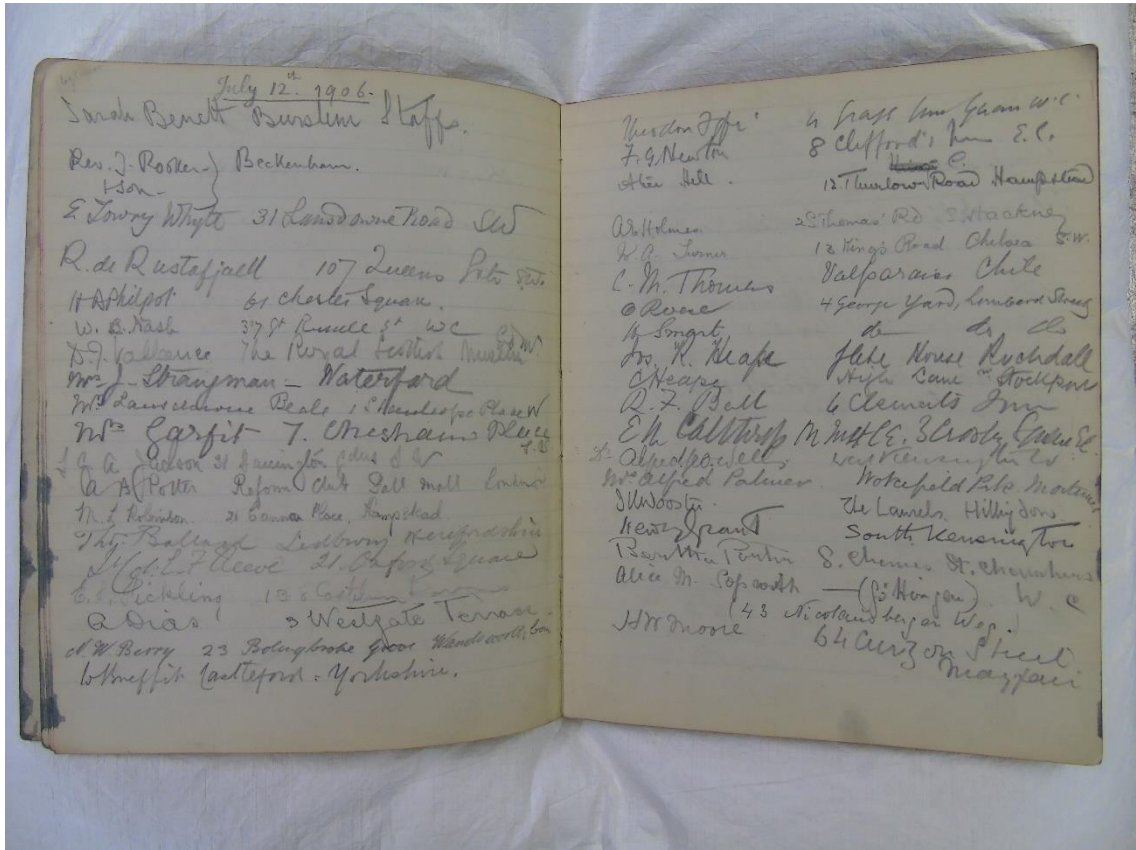 July 12th 1906.
Sarah Benett Burslem Staffs.
Rev. J. Rooker Beckenham.
+ Son
E Lowry Whyte 31 Lansdowne Road SW
R. de Rustafjaell 107 Queens Gate S.W.
H A Philpot 61 Chester Square.
W. B. Nash 37 Gt Russell St WC
Vallance The Royal Scottish Museum
Mrs J. Strangman - Waterford
Mrs Lansdowne Beale 1 Stanhope Place W
Mrs Garfit 7. Chesham Place
Jackson 31 Harrington Gdns S W
Potter Reform Club Pall Mall London
M. L Robinson 21 Cannon Place, Hampstead.
Ballard Ledbury Herefordshire
21. Square
Pickling 13
A Dias 3 Westgate Terrace
N. W Berry 23 Bolingbroke Grove Wandsworth Com
W Breffit Castleford = Yorkshire.
4 W.C.
F. G. Newton 8 Clifford's Inn E.C.
Alice Hill. 12 Thurlow Road Hampstead
Holmes 2 St Thomas' Rd S. Hackney
K. A. Turner 12 Kings Road Chelsea S.W.
C. M. Thomas Valparaiso Chile
Rose 4 George Yard, Lombard Street
Smart do do do
Jos. K. Heape House Rochdale
C Heape High Lane Stockport
R. F. Bell 6 Clements Inn
Calthrop 3 Crosby Square E.C.
Alfred West Kensington
Mrs Alfred Palmer Wokefield Park Mortimer
Wooster The Laurels Hillingdon
Henry Grant South Kensington
8. Thames St. Chambers
Alice M. Papworth W. C
(43 Nicolausbergen Weg.)
H W Moore 64 Curzon Street
Mayfair